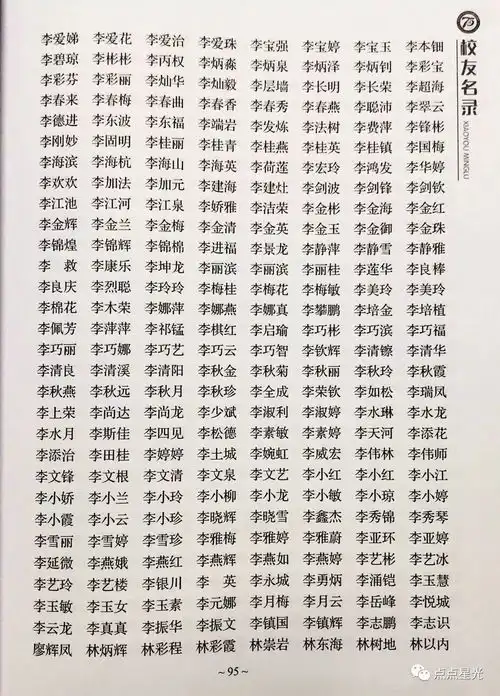 校友名录
XIAOYOU MINGLU
李爱娣 李爱花 李爱治 李爱珠 李宝强 李宝婷 李宝玉 李本钿
李碧琼 李彬彬 李丙权 李炳淼 李炳泉 李炳泽 李炳钊 李彩宝
李彩芬 李彩丽 李灿华 李灿毅 李层墙 李长明 李长荣 李超海
李春来 李春梅 李春曲 李春香 李春秀 李春燕 李聪沛 李翠云
李德进 李东波 李东福 李端岩 李发炼 李法树 李费萍 李锋彬
李刚妙 李固明 李桂丽 李桂青 李桂燕 李桂英 李桂镇 李国梅
李海滨 李海杭 李海山 李海英 李荷莲 李宏玲 李鸿发 李华婷
李欢欢 李加法 李加元 李建海 李建灶 李剑波 李剑锋 李剑钦
李江池 李江河 李江泉 李娇雅 李洁荣 李金彬 李金海 李金红
李金辉 李金兰 李金梅 李金清 李金英 李金玉 李金御 李金珠
李锦煌 李锦辉 李锦棉 李进福 李景龙 李静萍 李静雪 李静雅
李救 李康乐 李坤龙 李丽滨 李丽滨 李丽桂 李莲华 李良棒
李良庆 李烈聪 李玲玲 李梅桂 李梅花 李梅敏 李美玲 李美玲
李棉花 李木荣 李娜萍 李娜燕 李娜真 李攀鹏 李培金 李培植
李佩芳 李萍萍 李祁猛 李棋红 李启瑜 李巧彬 李巧滨 李巧福
李巧丽 李巧娜 李巧艺 李巧云 李巧智 李钦辉 李清镲 李清华
李清良 李清溪 李清阳 李秋金 李秋菊 李秋丽 李秋玲 李秋霞
李秋燕 李秋远 李秋月 李秋珍 李全成 李荣钦 李如松 李瑞凤
李上荣 李尚达 李尚龙 李少斌 李淑利 李淑婷 李水琳 李水龙
李水月 李斯佳 李四见 李松德 李素敏 李素婷 李天河 李添花
李添治 李田桂 李婷婷 李土城 李婉虹 李威宏 李伟林 李伟师
李文锋 李文根 李文清 李文泉 李文艺 李小红 李小红 李小江
李小娇 李小兰 李小玲 李小柳 李小龙 李小敏 李小琼 李小婷
李小霞 李小云 李小珍 李晓辉 李晓雪 李鑫杰 李秀锦 李秀琴
李雪丽 李雪婷 李雪珍 李雅梅 李雅婷 李雅蔚 李亚环 李亚婷
李延微 李燕娥 李燕红 李燕辉 李燕如 李燕婷 李艺彬 李艺冰
李艺玲 李艺楼 李银川 李英 李永城 李勇炳 李涌铠 李玉慧
李玉敏 李玉女 李玉素 李元娜 李月梅 李月云 李岳峰 李悦城
李云龙 李真真 李振华 李振文 李镇国 李镇辉 李志鹏 李志识
廖辉凤 林炳辉 林彩程 林彩霞 林崇岩 林东海 林树地 林以内
~95~
点点星光